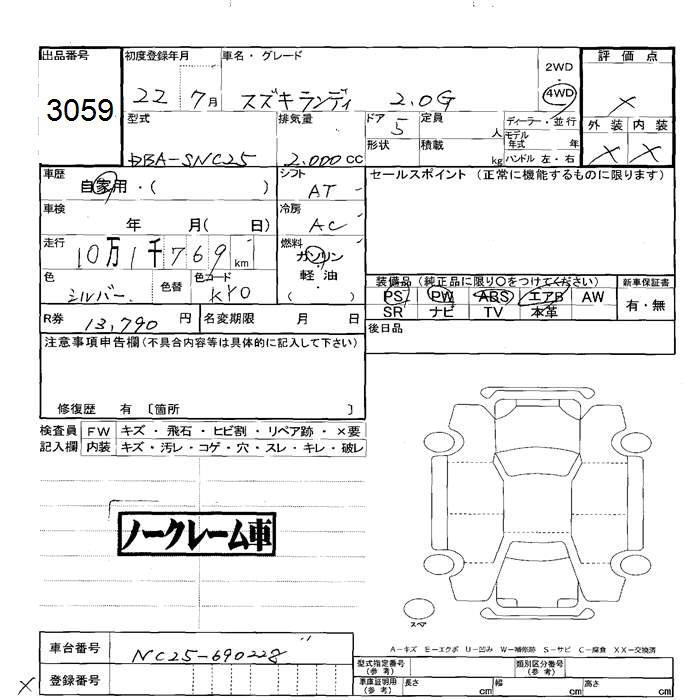 出品番号 初度登録年月 車名・グレード 2WD 評価点
3059 22 7月 スズキランディ 2.0G ・ 4WD ×
型式 排気量 ドア 5 定員 人 ディーラー・並行 外装 内装
DBA-SNC25 2.000cc 形状 積載 kg モデル年式 年 × ×
ハンドル 左・右
車歴 自家用・( ) シフト AT セールスポイント (正常に機能するものに限ります)
車検 年 月( 日) 冷房 AC
走行 10万1千769km 燃料 ガソリン
軽油
( )
色 シルバー 色替 色コード KY0
装備品 (純正品に限り○をつけてください) 新車保証書
PS PW ABS エアB AW 有・無
SR ナビ TV 本革
R券 13,790円 名変期限 月 日 後日品
注意事項申告欄(不具合内容等は具体的に記入して下さい)
修復歴 有 〔箇所 〕
検査員 FW キズ・飛石・ヒビ割・リペア跡・×要
記入欄 内装 キズ・汚レ・コゲ・穴・スレ・キレ・破レ
ノークレーム車
スペア
A-キズ E-エクボ U-凹み W-補修跡 S-サビ C-腐食 XX-交換済
車台番号 NC25-690228
型式指定番号(参考) 類別区分番号(参考)
× 登録番号
車庫証明用(参考) 長さ cm 幅 cm 高さ cm